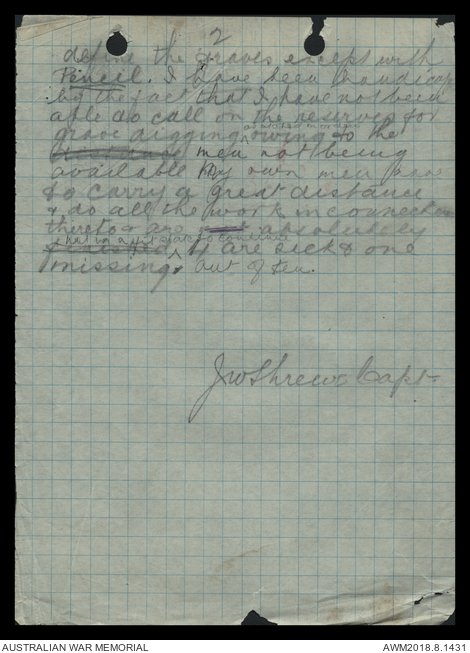 2
define the graves except with
Pencil. I have been handicap
by the fact that I have not been
able to call on the reserves for
grave digging owing to the
men not being
available My own men have
to carry a great distance
& do all the work in connection
thereto & are absolutely
not in a fit state to
4 are sick & one
missing, out of ten.
JW Shrewe Capt
AUSTRALIAN WAR MEMORIAL
AWM2018.8.1431